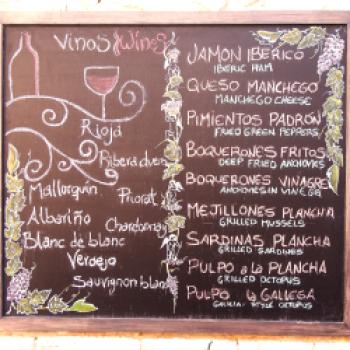 Vinos Wines
Rioja
Ribera duero
Mallorquin
Priorat
Albariño
Chardonnay
Blanc de blanc
Verdejo
Sauvignon blanc
JAMON IBERICO
IBERIC HAM
QUESO MANCHEGO
MANCHEGO CHEESE
PIMIENTOS PADRÓN
FRIED GREEN PEPPERS
BOQUERONES FRITOS
DEEP FRIED ANCHOVIES
BOQUERONES VINAGRE
ANCHOVIES IN VINEGAR
MEJILLONES PLANCHA
GRILLED MUSSELS
SARDINAS PLANCHA
GRILLED SARDINES
PULPO a la PLANCHA
GRILLED OCTOPUS
PULPO a la GALLEGA
STYLE OCTOPUS